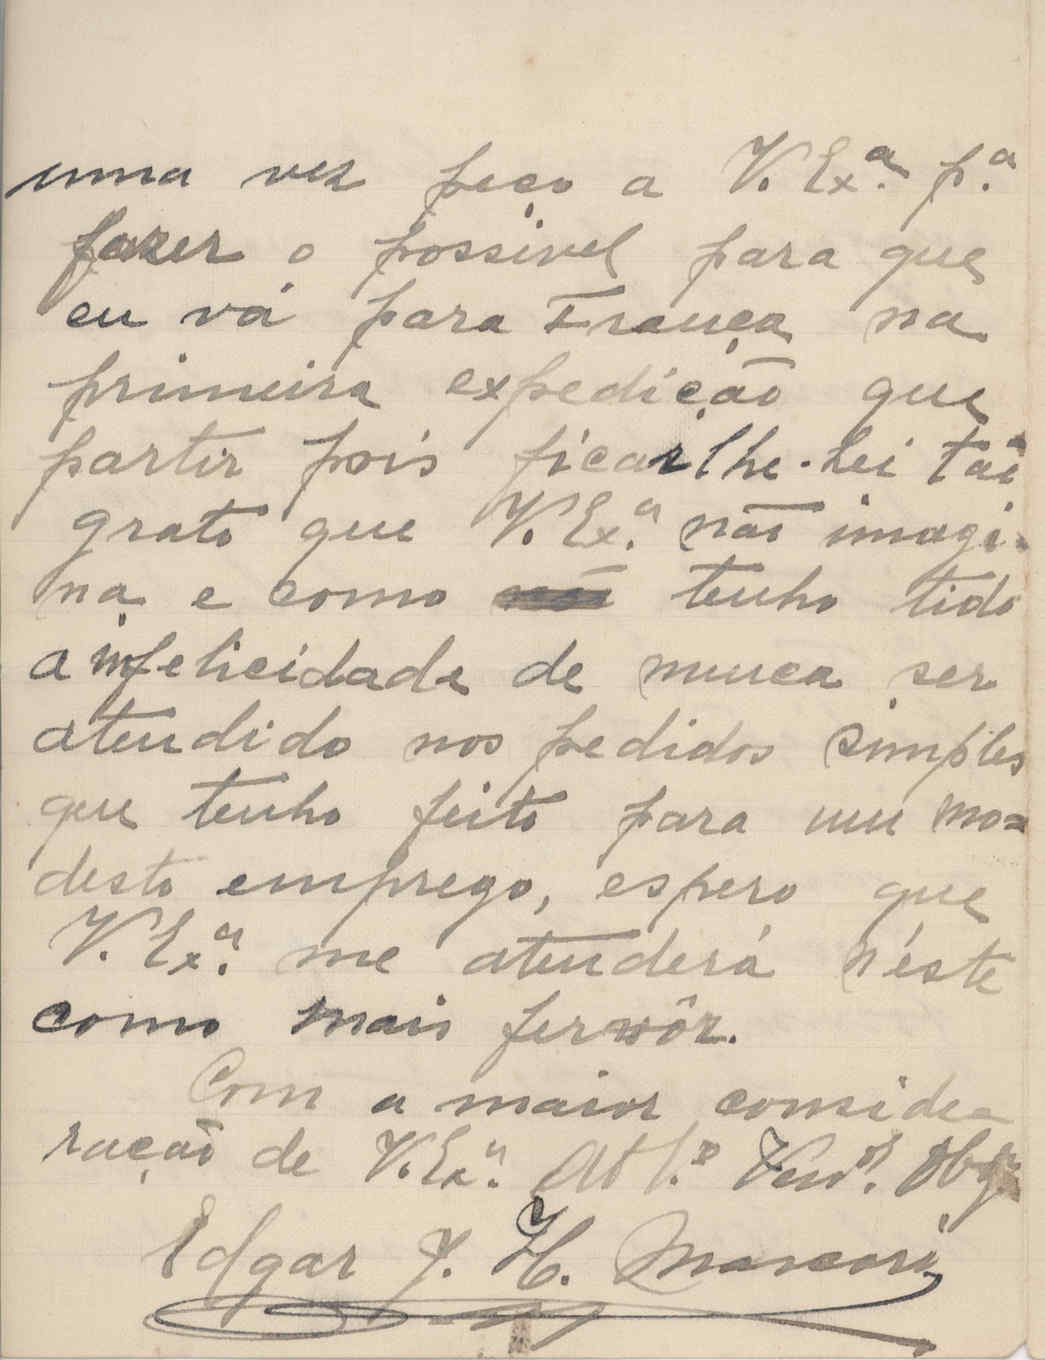 uma vez peço a V. Exª. p.ª
fazer o possivel para que
eu vá para França na
primeira expedição que
partir pois ficar lhe-hei tão
grato que V. Ex.ª não imagi-
na e como não tenho tido
a infelicidade de nunca ser
atendido nos pedidos simples
que tenho feito para um mo=
desto emprego, espero que
V. Exª. me atenderá n'éste
como mais fervôr.
Com a maior conside-
ração de V. Exª. Att.º Ven.ºr. Obg.º
Edgar J. H.